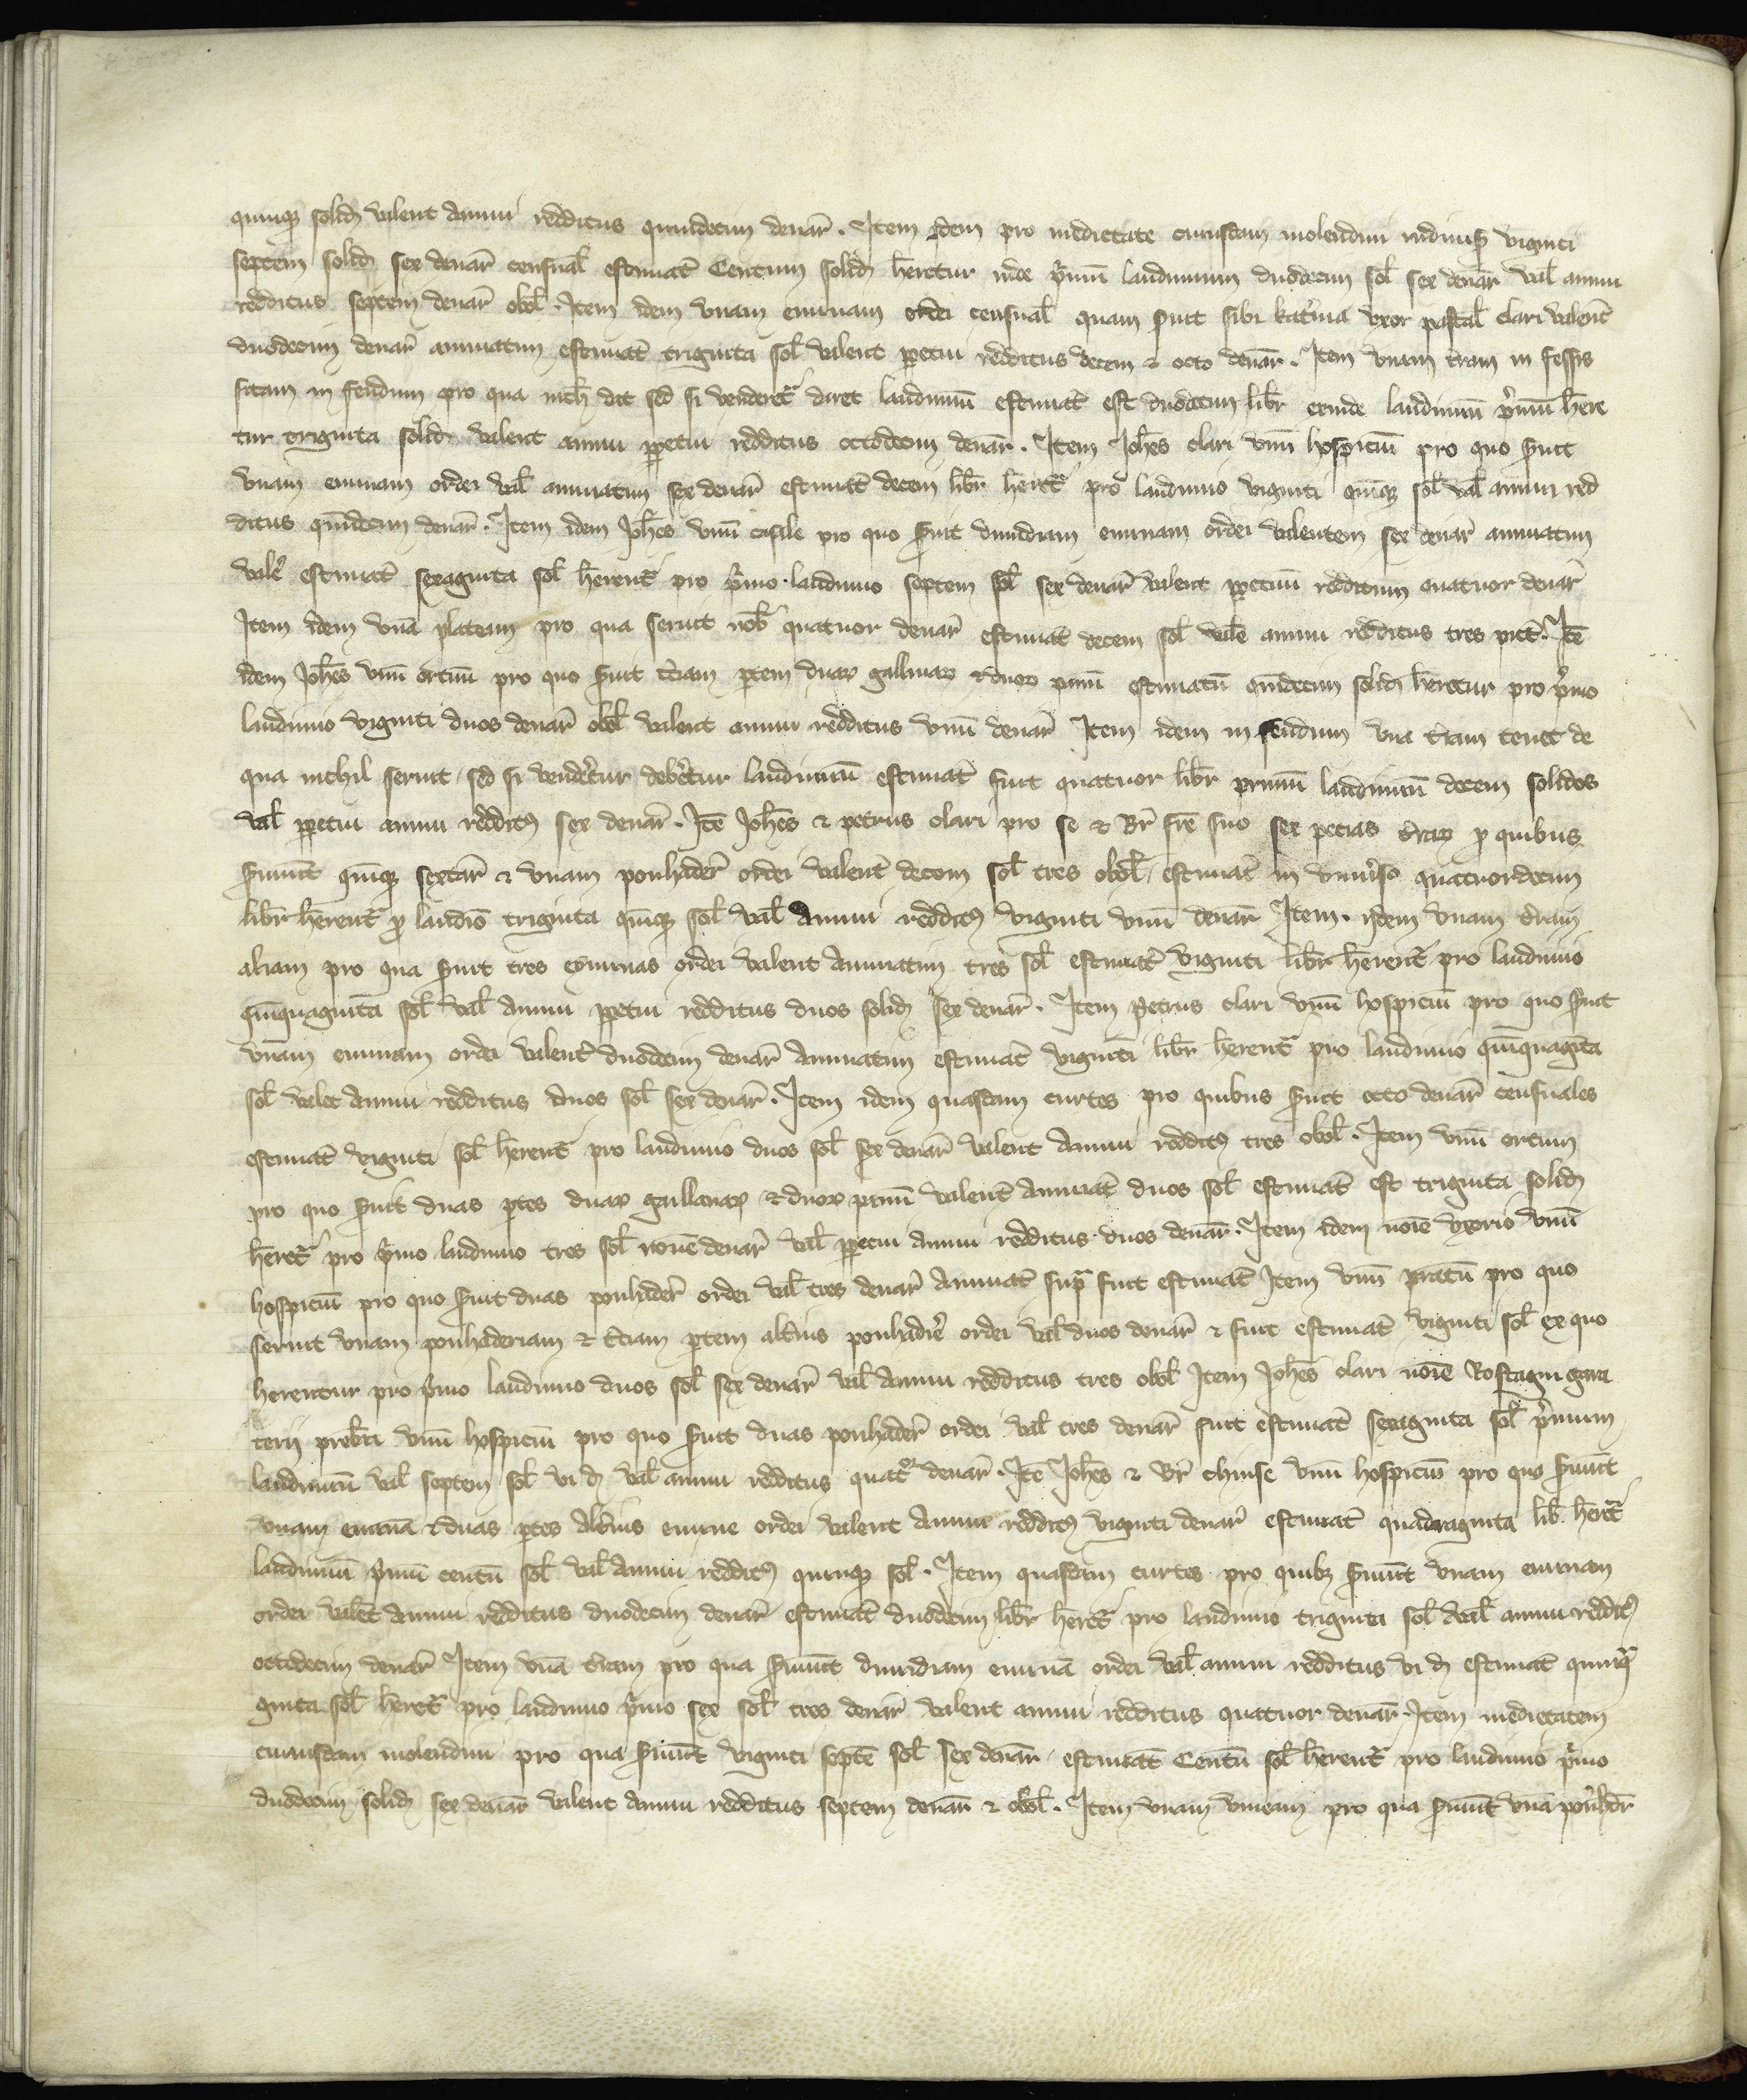 quinq3 solid valent annui redditus quindecim denar̄. Item idem pro medietate cuiusdam molendini viginti
septem solid sex denar̄ censual̄ estimat̄ Centum solid h̄retur inde p̄mū laudimium duodecim sol̄ sex denar̄ val̄ annui
redditus septem denar̄ obol̄. Item idem vnam eminam ordei censual̄ quam s̄uit sibi kat̄ina vxor pascal̄ clari valent̄
duodecim denar̄ annuatim estimat̄ triginta sol̄ valent p̄petui redditus decem & octo denar̄. Item vnam t̄ram in fessis
sitam in feudum pro qua nich̄ dat sed si venderet̄ daret laudimiū estimat̄ est duodecim libr̄ exinde laudimiū p̄mū h̄re
tur triginta solid valent annui p̄petui redditus octodecim denar̄. Item Joh̄es clari vnū hospiciū pro quo s̄uit
vnam eminam ordei val̄ annuatim sex denar̄ estimat̄ decem libr̄ h̄ret̄ pro laudimio viginti quīq3 sol̄ val̄ annui red
ditus quīdecim denar̄. Item idem Joh̄es vnū casale pro quo s̄uit dimidiam eminam ordei valentem sex denar̄ annuatim
valēt estimat̄ sexaginta sol̄ h̄rent̄ pro p̄mo laudimio septem sol̄ sex denar̄ valent p̄petuū redditum quatuor denar̄
Item idem vnā plateam pro qua seruit nob̄ quatuor denar̄ estimat̄ decem sol̄ val̄ annui redditus tres pict̄. Itē
idem Joh̄es vnū ortum pro quo s̄uit t̄ciam p̄tem duar gallinar & duor panū estimatū quīdecim solid h̄retur pro p̄mo
laudimio viginti duos denar̄ obol̄ valent annui redditus vnū denar̄ Item idem in feudum vnā t̄ram tenet de
qua nichil seruit sed si vendēretur debēretur laudimiū estimat̄ fuit quatuor libr̄ primū laudimiū decem solidos
val̄ p̄petui annui reddit9 sex denar̄. Itē Joh̄es & petrus clari pro se & Br̄ fr̄e suo sex pecias t̄rar p quibus
s̄uiūt quīq3 sextar̄ & vnam ponhader̄ ordei valent̄ decem sol̄ tres obol̄ estimat̄ in vniu̇so quatuordecim
libr̄ h̄rent̄ p laudīo triginta quīq3 sol̄ val̄ annui reddit9 viginti vnū denar̄ Item idem vnam t̄ram
aliam pro qua s̄uit tres eyminas ordei valent annuatim tres sol̄ estimat̄ viginti libr̄ h̄rent̄ pro laudimio
quīquaginta sol̄ val̄ annui p̄petui redditus duos solid sex denar̄. Item Petrus clari vnū hospiciū pro quo s̄uit
vnam eminam ordei valent̄ duodecim denar̄ annuatim estimat̄ viginti libr̄ h̄rent̄ pro laudimio quīquaginta
sol̄ valet annui redditus duos sol̄ sex denar̄. Item idem quasdam curtes pro quibus s̄uit octo denar̄ censuales
estimat̄ viginti sol̄ h̄rent̄ pro laudimio duos sol̄ sex denar̄ valent annui reddit9 tres obol̄. Item vnū ortum
pro quo s̄uit duas p̄tes duar gallinar & duor panū valent̄ annuat̄ duos sol̄ estimat̄ est triginta solid
h̄ret̄ pro p̄mo laudimio tres sol̄ nouē denar̄ val̄ p̄petui annui redditus duos denar̄. Item idem noīe vxoris vnū
hospiciū pro quo s̄uit duas ponhader̄ ordei val̄ tres denar̄ annuat̄ sup̄ fuit estimat̄ Item vnū pratū pro quo
seruit vnam ponhaderiam & t̄ciam p̄tem alt̄ius ponhad̄rie ordei val̄ duos denar̄ & fuit estimat̄ viginti sol̄ ex quo
herentur pro p̄mo laudimio duos sol̄ sex denar̄ val̄ annui redditus tres obol̄ Item Joh̄es clari noīe Rostagni gara
terij prebri vnū hospiciū pro quo s̄uit duas ponhader̄ ordei val̄ tres denar̄ fuit estimat̄ sexaginta sol̄ p̄mum
laudimiū val̄ septem sol̄ vi d val̄ annui redditus quatuor denar̄. Itē Joh̄es & Br̄ chinse vnū hospiciū pro quo s̄uiūt
vnam eminā & duas p̄tes alt̄ius emine ordei valent annui reddit9 viginti denar̄ estimat̄ quadraginta lib̄ h̄ret̄
laudimiū p̄mū centū sol̄ val̄ annui reddit9 quinq3 sol̄. Item quasdam curtes pro quib3 s̄uiūt vnam eminam
ordei valēt annui redditus duodecim denar̄ estimat̄ duodecim libr̄ h̄ret̄ pro laudimio triginta sol̄ val̄ annui reddit9
octodecim denar̄ Item vnā t̄ram pro qua s̄uiūt dimidiam eminā ordei val̄ annui redditus vi d estimat̄ quinqua
ginta sol̄ h̄ret̄ pro laudimio p̄mo sex sol̄ tres denar̄ valent annui redditus quatuor denar̄. Item medietatem
cuiusdam molendini pro qua s̄uiūt viginti septē sol̄ sex denar̄ estimat̄ Centū sol̄ h̄rent̄ pro laudimio p̄mo
duodecim solid sex denar̄ valent annui redditus septem denar̄ & obol̄. Item vnam vineam pro qua s̄uiūt vnā ponhdr̄